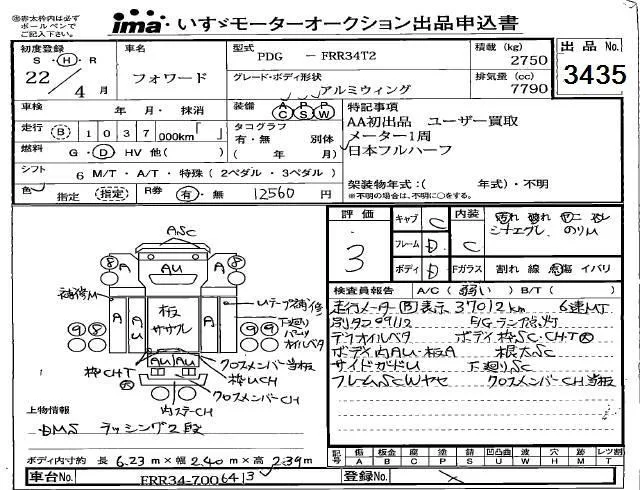 ※赤太枠内は必ず
ボールペンで
ご記入下さい。
ima いすゞモーターオークション出品申込書
初度登録 車名 型式 PDG － FRR34T2 積載(kg) 2750 出品No. 3435
S・H・R 22/4月 フォワード グレード・ボディ形状 アルミウィング 排気量(cc) 7790
車検 年 月・抹消 装備 AC PS PW 特記事項
AA初出品 ユーザー買取
走行 B 1037 000km「 」 タコグラフ 有・無 別体 メーター1周
燃料 G・D HV 他( ) ( 年 月) 日本フルハーフ
シフト 6 M/T・A/T・特殊(2ペダル・3ペダル)
色 指定 (指定) R券 有・無 12560 円 架装物年式:( 年式)・不明
※不明の場合は、不明に○をする。
評価 3 キャブ C 内装 C
フレーム D シナエグレ のりM
ボディ D Fガラス 割れ 線 飛傷 イバリ
検査員報告 A/C(弱い) B/T( )
走行メーターB表示 37012km 6速MT
E/Gランプ点灯
デフオイルモレ ボディ枠SC・CH・T大
ボディ内AU・板A 根太SC
サイドガードU 下廻りSC
フレームSCWヤセ クロスメンバーCH当板
ASC
8 A AU A 8
補修M Uテープ補修
A A 板ササクレ A
下廻り
オイルモレ
9 8 9 9
AU AU クロスメンバー当板
枠CHT大 枠UCH
クロスメンバーCH
内ステーCH
上物情報
DMS ラッシング2段
ボディ内寸約 長 6.23 m×幅 2.40 m×高 2.39m
記号 傷A 板金B 腐C 塗P 請S 凹凸曲U 波W 穴H 跡M レツ割T
車台No. FRR34-7006413 登録No.